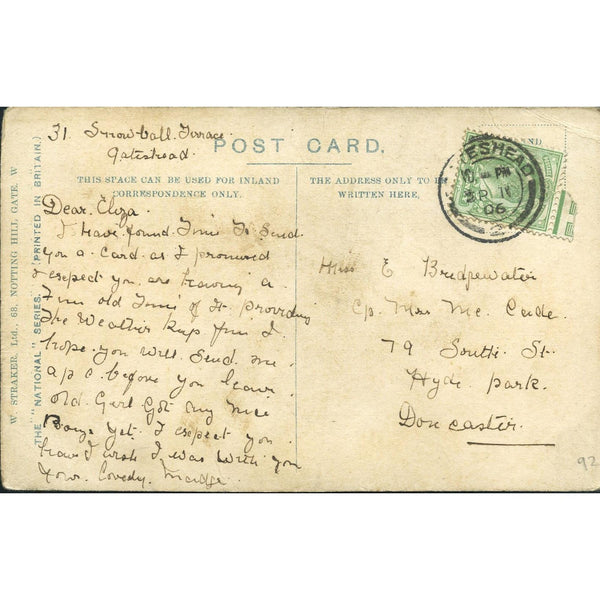 31 Snowball Terrace
Gateshead
POST CARD.
THIS SPACE CAN BE USED FOR INLAND
CORRESPONDENCE ONLY.
THE ADDRESS ONLY TO BE
WRITTEN HERE,
Dear Eliza
I have found Time To Send
you a Card as I promised
I expect you are having a
Fine old Time of It providing
The Weather Keep fine I
hope you will Send me
a p c before you leave
old Girl Got any Nice
Boys yet I expect you
have I wish I was With you
Your Lovedy Madge
Miss E Bridgewater
79 South St
Hyde park
Doncaster
W. STRAKER, Ltd., 68, NOTTING HILL GATE, W.
THE "NATIONAL" SERIES. (PRINTED IN BRITAIN.)
ESHEAD
PM
06
2
92